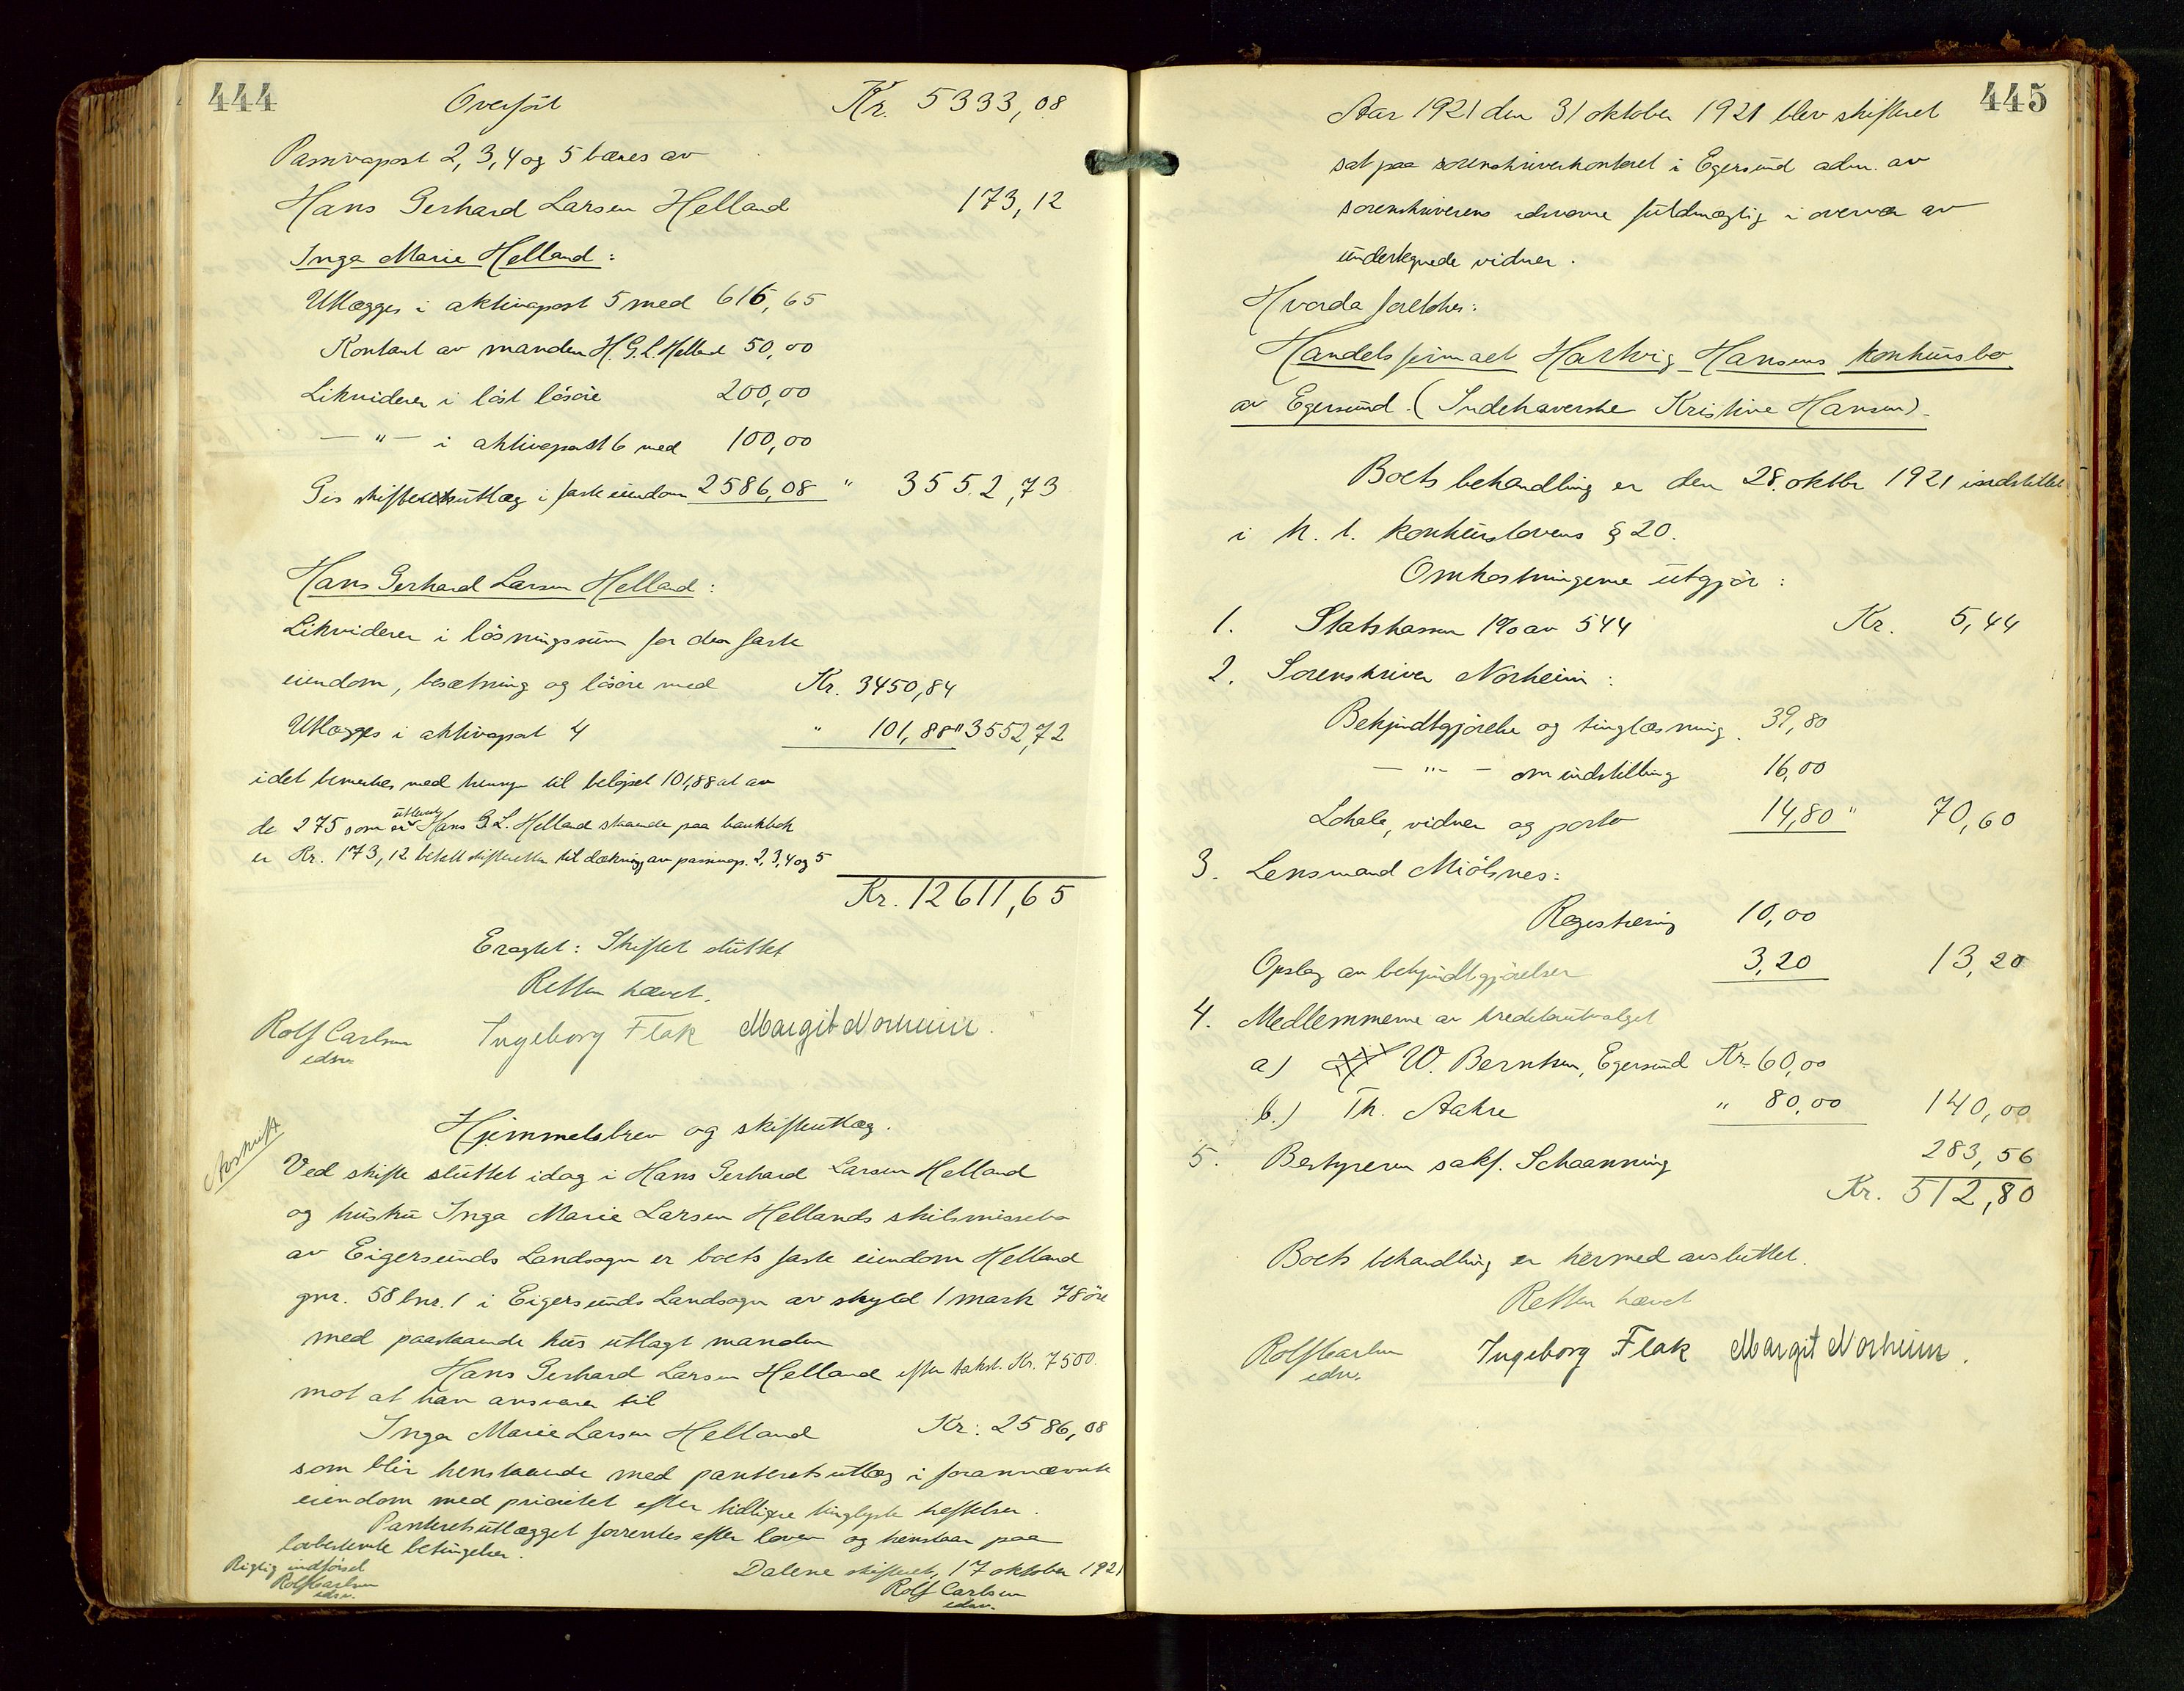 444
Overført Kr. 5333,08
Passivapost 2, 3, 4 og 5 bæres av
Hans Gerhard Larsen Helland 173,12
Inga Marie Helland:
Utlægges i aktivapost 5 med 616,65
Kontant av manden H. G. L. Helland 50,00
Likviderer i løst løsøre 200,00
— " — i aktivapost 6 med 100,00
Gis skifteutlæg i faste eiendom 2586,08 " 3552,73
Hans Gerhard Larsen Helland:
Likviderer i løsningssum for den faste
eiendom, besætning og løsøre med Kr. 3450,84
Utlægges i aktivapost 4 " 101,88 " 3552,72
idet bemerkes med hensyn til beløpet 101,88 at av
de 275 som er utlagt Hans G. L. Helland staaende paa bankbok
er Kr. 173,12 betalt skifteretten til dækning av passivap. 2, 3, 4 og 5
Kr. 12611,65
Eragtet: Skiftet sluttet
Retten hævet.
Rolf Carlsen Ingeborg Flak Margit Norheim.
edsv.
Avskrift
Hjemmelsbrev og skifteutlæg.
Ved skifte sluttet idag i Hans Gerhard Larsen Helland
og hustru Inga Marie Larsen Hellands skilsmissebo
av Eigersunds Landsogn er boets faste eiendom Helland
gnr. 58 bnr. 1 i Eigersunds Landsogn av skyld 1 mark 78 øre
med paastaaende hus utlagt manden
Hans Gerhard Larsen Helland efter takst. Kr. 7500.
mot at han ansvarer til
Inga Marie Larsen Helland Kr: 2586,08
som blir henstaaende med panteretsutlæg i forannævnte
eiendom med prioritet efter tidligere tinglyste heftelser.
Panteretsutlægget forrentes efter loven og henstaar paa
lovbestemte betingelser.
Dalene skifteret, 17 oktober 1921
Rolf Carlsen
edsv.
Rigtig indførsel
Rolf Carlsen
edsv.
445
Aar 1921 den 31 oktober 1921 blev skifteret
sat paa sorenskriverkontoret i Egersund adm. av
sorenskriverens edsvorne fuldmægtig i overvær av
undertegnede vidner.
Hvorda foretokes:
Handelsfirmaet Hartvig Hansens konkursbo
av Egersund. (Indehaverske Kristine Hansen).
Boets behandling er den 28. oktbr 1921 indstillet
i h. t. konkurslovens § 20.
Omkostningerne utgjør:
1. Statskassen 1% av 544 Kr. 5,44
2. Sorenskriver Norheim:
Bekjendtgjørelse og tinglæsning. 39,80
— " — om indstilling 16,00
Lokale, vidner og porto 14,80 " 70,60
3. Lensmand Miölsnes:
Registrering 10,00
Opslag av bekjendtgjørelser 3,20 13,20
4. Medlemmerne av kreditorutvalget
a) W. Berntsen, Egersund Kr. 60,00
b.) Th. Aakre " 80,00 140,00
5. Bestyreren sakf. Schaanning 283,56
Kr. 512,80
Boets behandling er hermed avsluttet.
Retten hævet
Rolf Carlsen Ingeborg Flak Margit Norheim.
edsv.